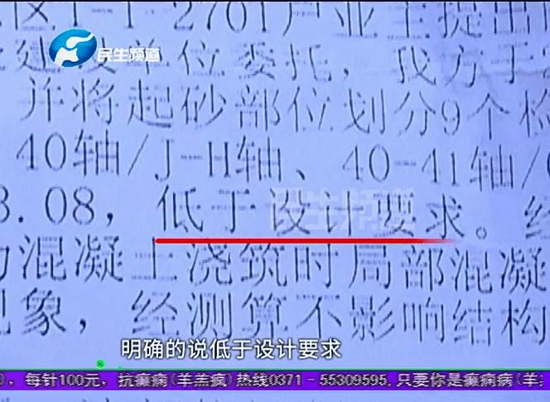 区1-1-2701户业主提出
民生频道
建设单位委托，我方于
并将起砂部位划分9个检
40轴/J-H轴、40-41轴/
3.08，低于设计要求。经
民生频道
力混凝土浇筑时局部混凝
现象，经测算不影响结构
明确的说低于设计要求
)，每针100元，抗癫痫(羊羔疯)热线0371-55309595.只要你是癫痫病(羊